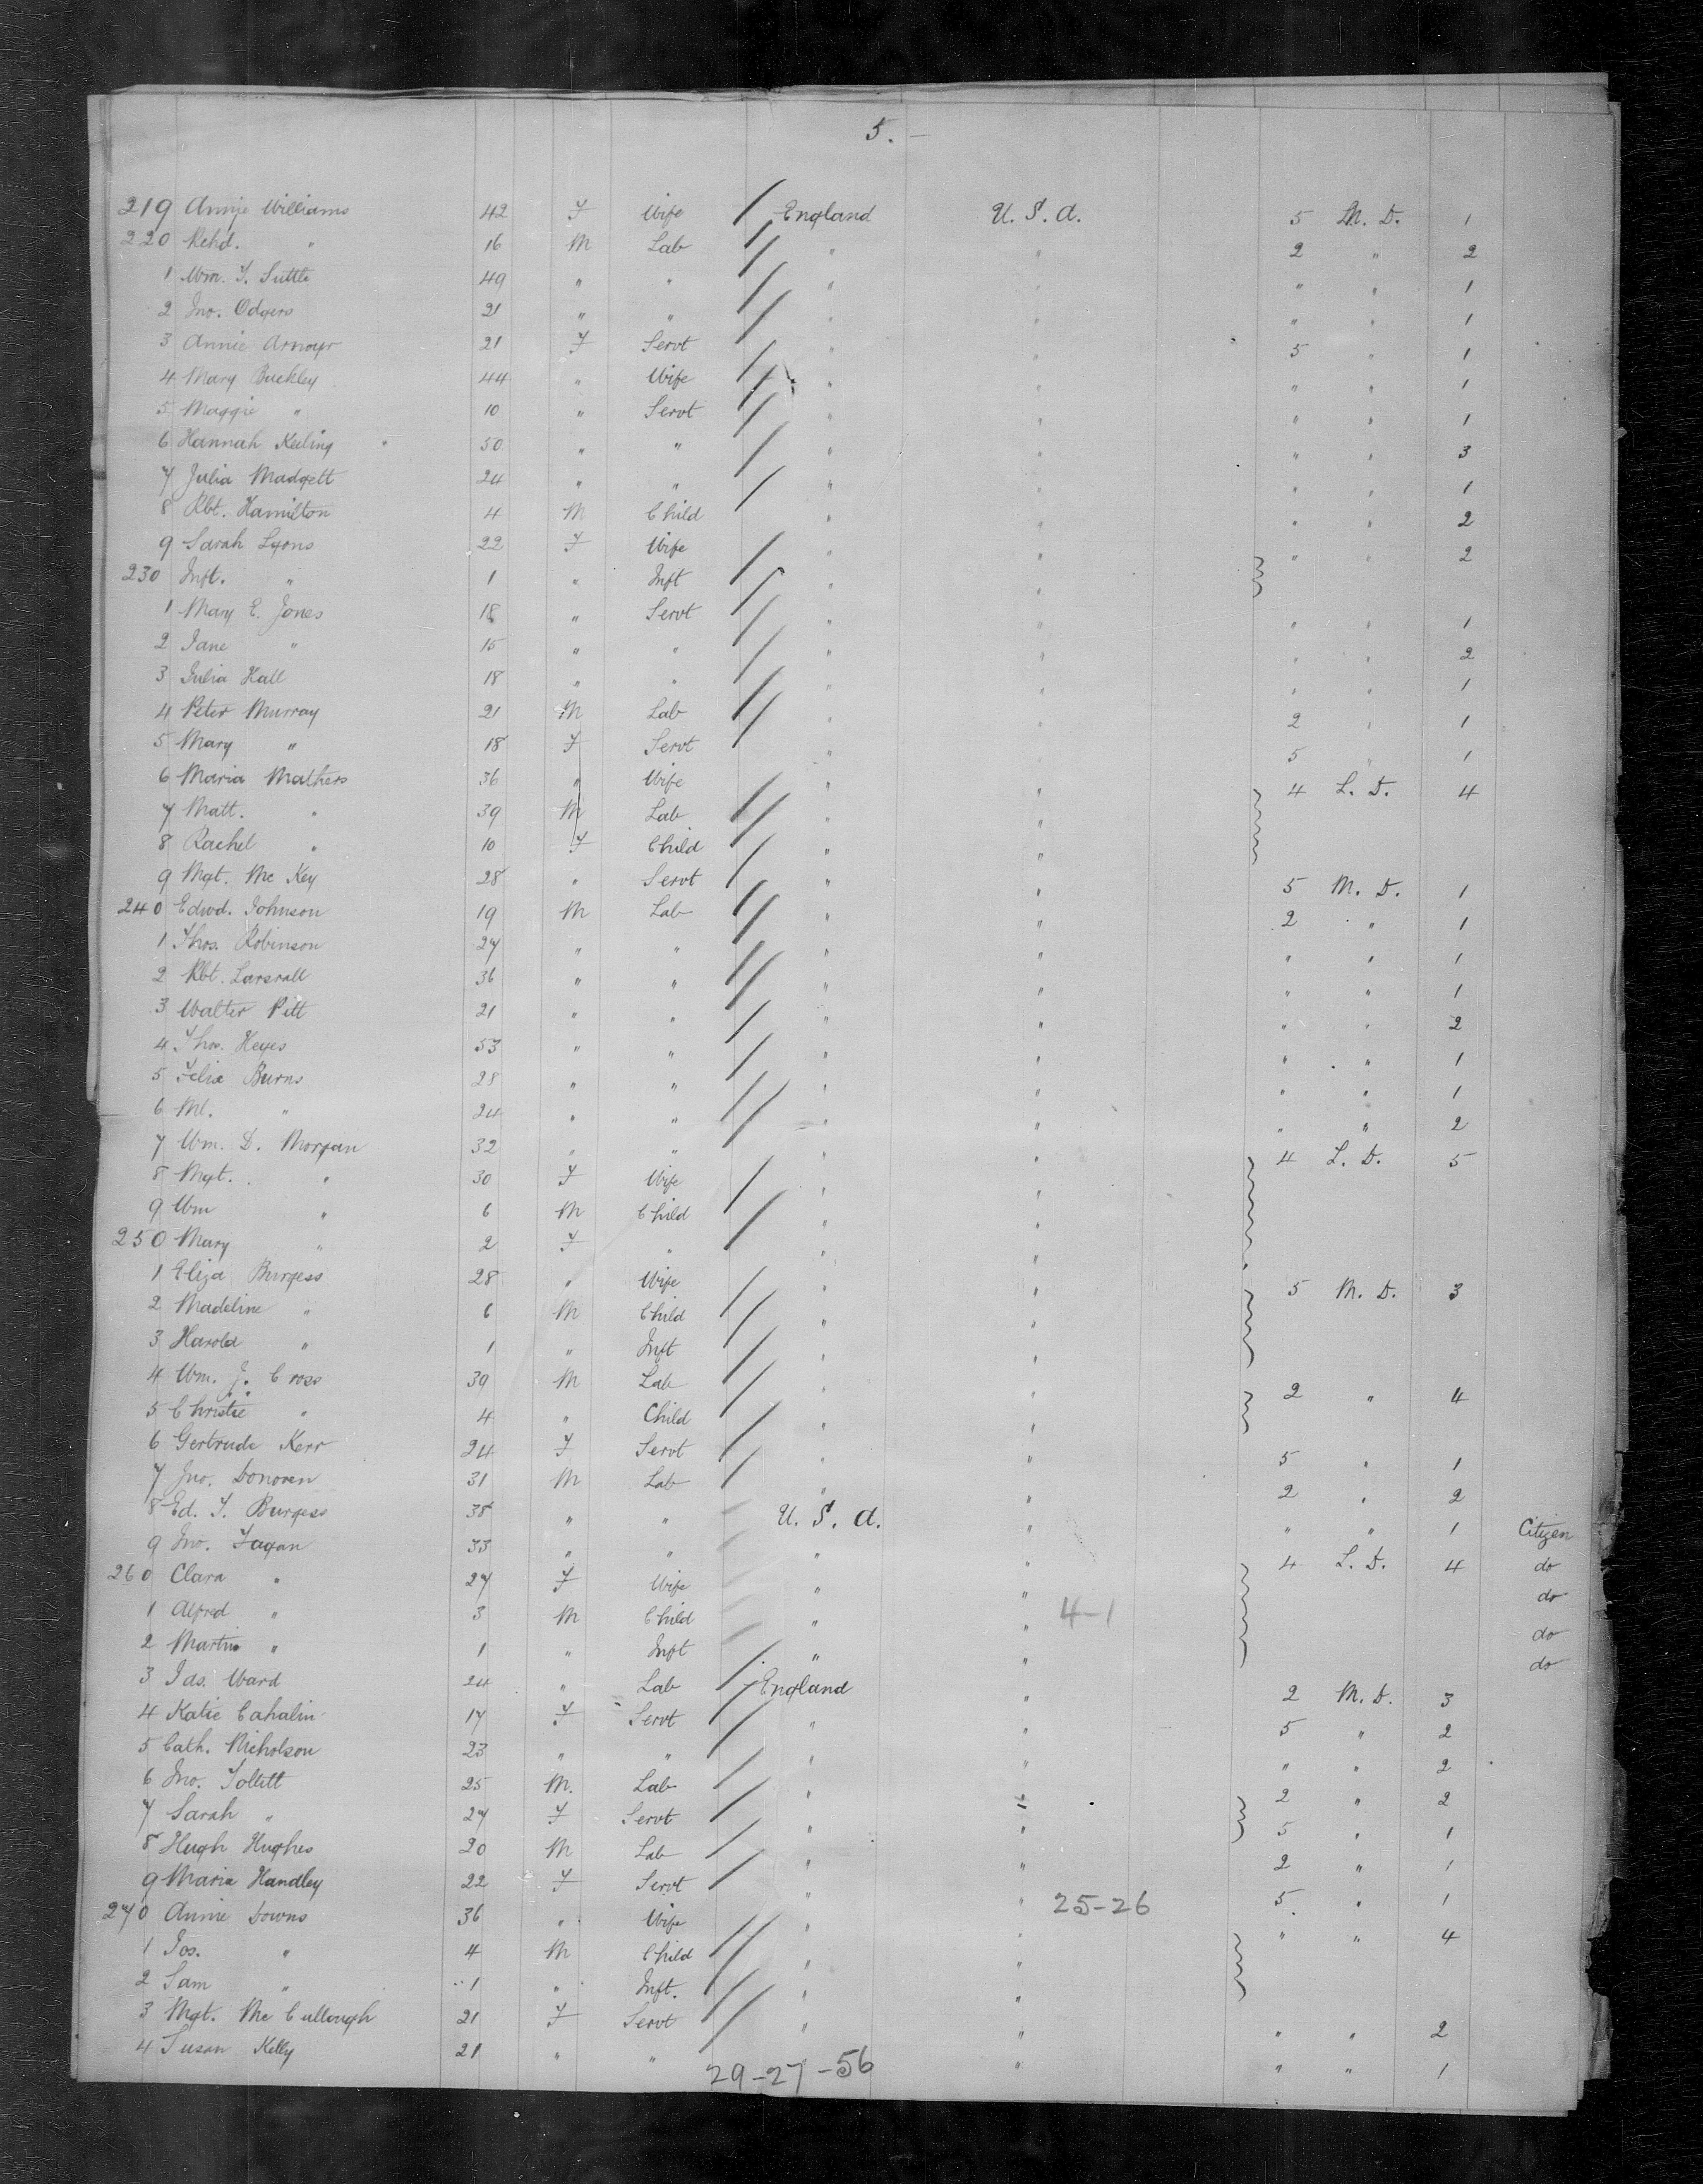 5. —
219 Annie Williams 42 F Wife England U. S. A. 5 M. D. 1
220 Rchd. " 16 M Lab " " 2 " 2
1 Wm. T. Suttle 49 " " " " " " 1
2 Jno. Odgers 21 " " " " " " 1
3 Annie 21 F Servt " " 5 " 1
4 Mary Buckley 44 " Wife " " " " 1
5 Maggie " 10 " Servt " " " " 1
6 Hannah Keeling 50 " " " " " " 3
7 Julia Madgett 24 " " " " " " 1
8 Rbt. Hamilton 4 M Child " " " " 2
9 Sarah Lyons 22 F Wife " " " " 2
230 Inft. " 1 " Inft " "
1 Mary E. Jones 18 " Servt " " " " 1
2 Jane " 15 " " " " " " 2
3 Julia Hall 18 " " " " " " 1
4 Peter Murray 21 M Lab " " 2 " 1
5 Mary " 18 F Servt " " 5 " 1
6 Maria Mathers 36 " Wife " " 4 L. D. 4
7 Matt. " 39 M Lab " "
8 Rachel " 10 F Child " "
9 Mgt. Mc Key 28 " Servt " " 5 M. D. 1
240 Edwd. Johnson 19 M Lab " " 2 " 1
1 Thos. Robinson 27 " " " " " " 1
2 Rbt. 36 " " " " " " 1
3 Walter Pitt 21 " " " " " " 2
4 Thos. Heyes 53 " " " " " " 1
5 Felix Burns 28 " " " " " " 1
6 Ml. " 24 " " " " " " 2
7 Wm. D. Morgan 32 " " " " 4 L. D. 5
8 Mgt. " 30 F Wife " "
9 Wm " 6 M Child " "
250 Mary " 2 F " " "
1 Eliza Burgess 28 " Wife " " 5 M. D. 3
2 Madeline " 6 M Child " "
3 Harold " 1 " Inft " "
4 Wm. J. Cross 39 M Lab " " 2 " 4
5 Christie " 4 " Child " "
6 Gertrude Kerr 24 F Servt " " 5 " 1
7 Jno. Donoven 31 M Lab " " 2 " 2
8 Ed. T. Burgess 38 " " U. S. A. " " " 1 Citizen
9 Jno. Fagan 33 " " " " 4 L. D. 4 do
260 Clara " 27 F Wife " " do
1 Alfred " 3 M Child " " 4-1 do
2 Martin " 1 " Inft " " do
3 Jas. Ward 24 " Lab England " 2 M. D. 3
4 Katie Cahalin 17 F Servt " " 5 " 2
5 Cath. Nicholson 23 " " " " " " 2
6 Jno. Tollett 25 M. Lab " " 2 " 2
7 Sarah " 27 F Servt " " 5 " 1
8 Hugh Hughes 20 M Lab " " 2 " 1
9 Maria Handley 22 F Servt " " 25-26 5 " 1
270 Annie Downs 36 " Wife " " " " 4
1 Jos. " 4 M Child " "
2 Sam " 1 " Inft. " "
3 Mgt. Mc Cullough 21 F Servt " " " " 2
4 Susan Kelly 21 " " " " " 1
29-27-56